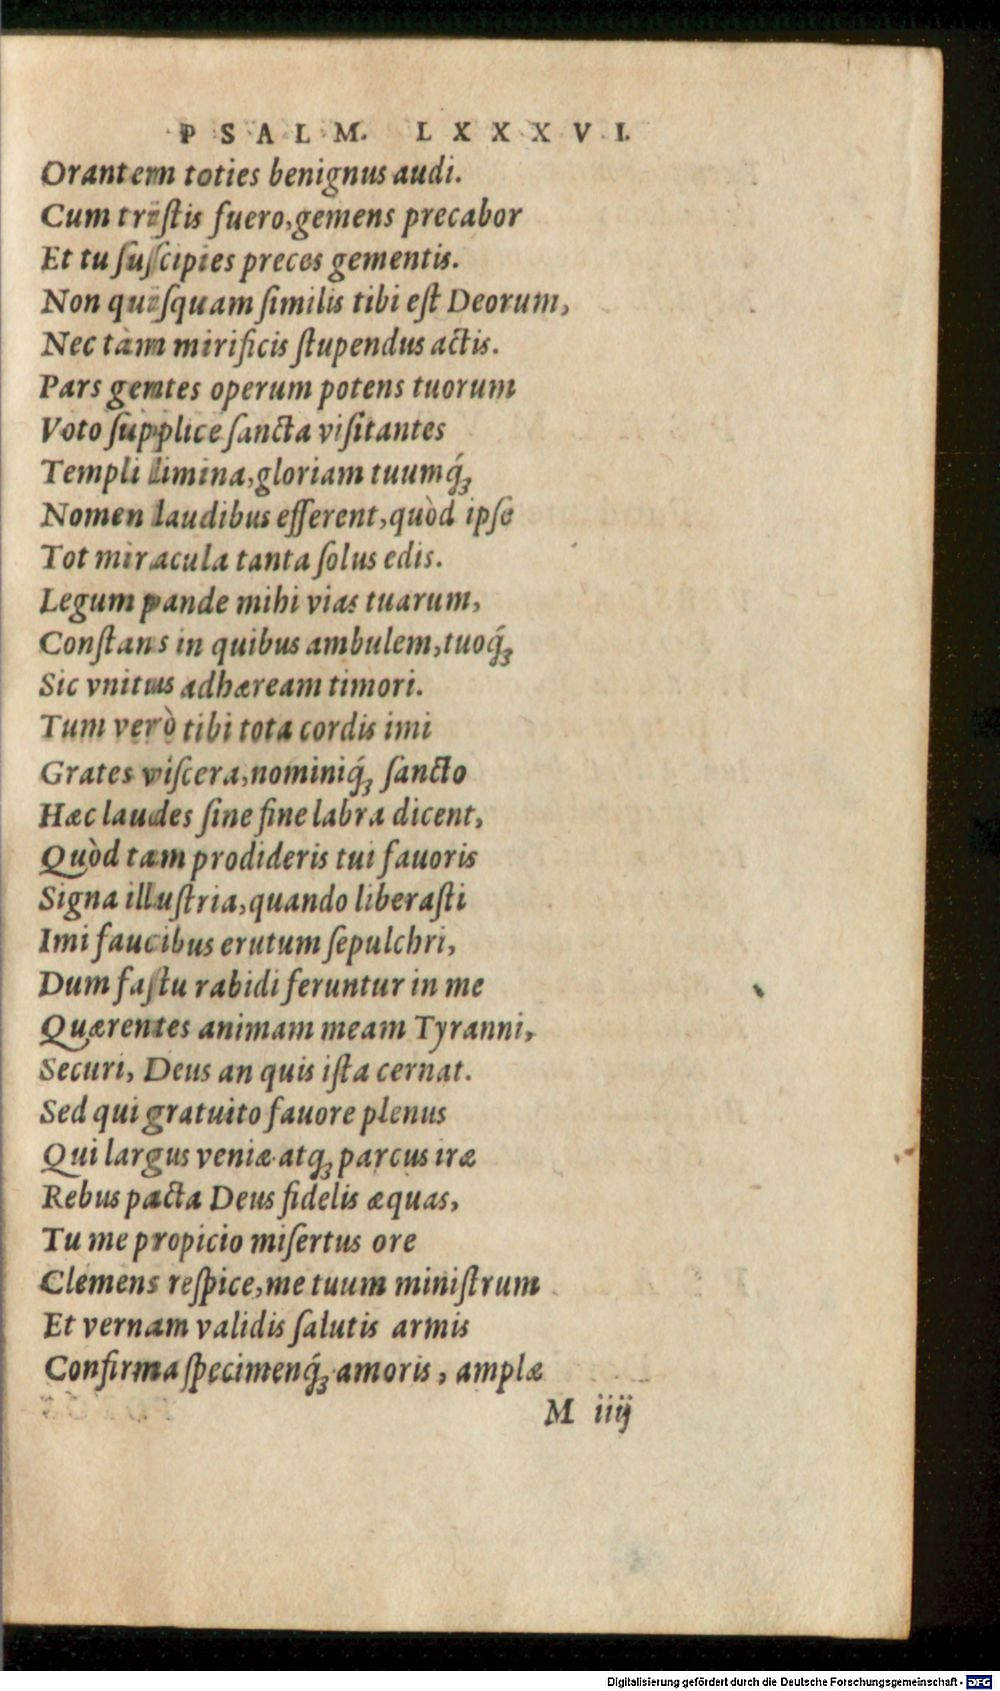 PSALM. LXXXVI.
Orantem toties benignus audi.
Cum tristis fuero, gemens precabor
Et tu suſcipies preces gementis.
Non quiſquam ſimilis tibi eſt Deorum,
Nec tàm mirificis ſtupendus actis.
Pars gentes operum potens tuorum
Voto ſupplice ſancta viſitantes
Templi limina, gloriam tuumq́;
Nomen laudibus efferent, quòd ipſe
Tot miracula tanta ſolus edis.
Legum pande mihi vias tuarum,
Conſtans in quibus ambulem, tuoq́;
Sic vnitus adhæream timori.
Tum verò tibi tota cordis imi
Grates viſcera, nominiq́; ſancto
Hæc laudes ſine fine labra dicent,
Quòd tam prodideris tui fauoris
Signa illuſtria, quando liberaſti
Imi faucibus erutum ſepulchri,
Dum faſtu rabidi feruntur in me
Quærentes animam meam Tyranni,
Securi, Deus an quis iſta cernat.
Sed qui gratuito fauore plenus
Qui largus veniæ atq; parcus iræ
Rebus pacta Deus fidelis æquas,
Tu me propicio miſertus ore
Clemens reſpice, me tuum miniſtrum
Et vernam validis ſalutis armis
Confirma ſpecimenq́; amoris, amplæ
M iiij
Digitalisierung gefördert durch die Deutsche Forschungsgemeinschaft - DFG